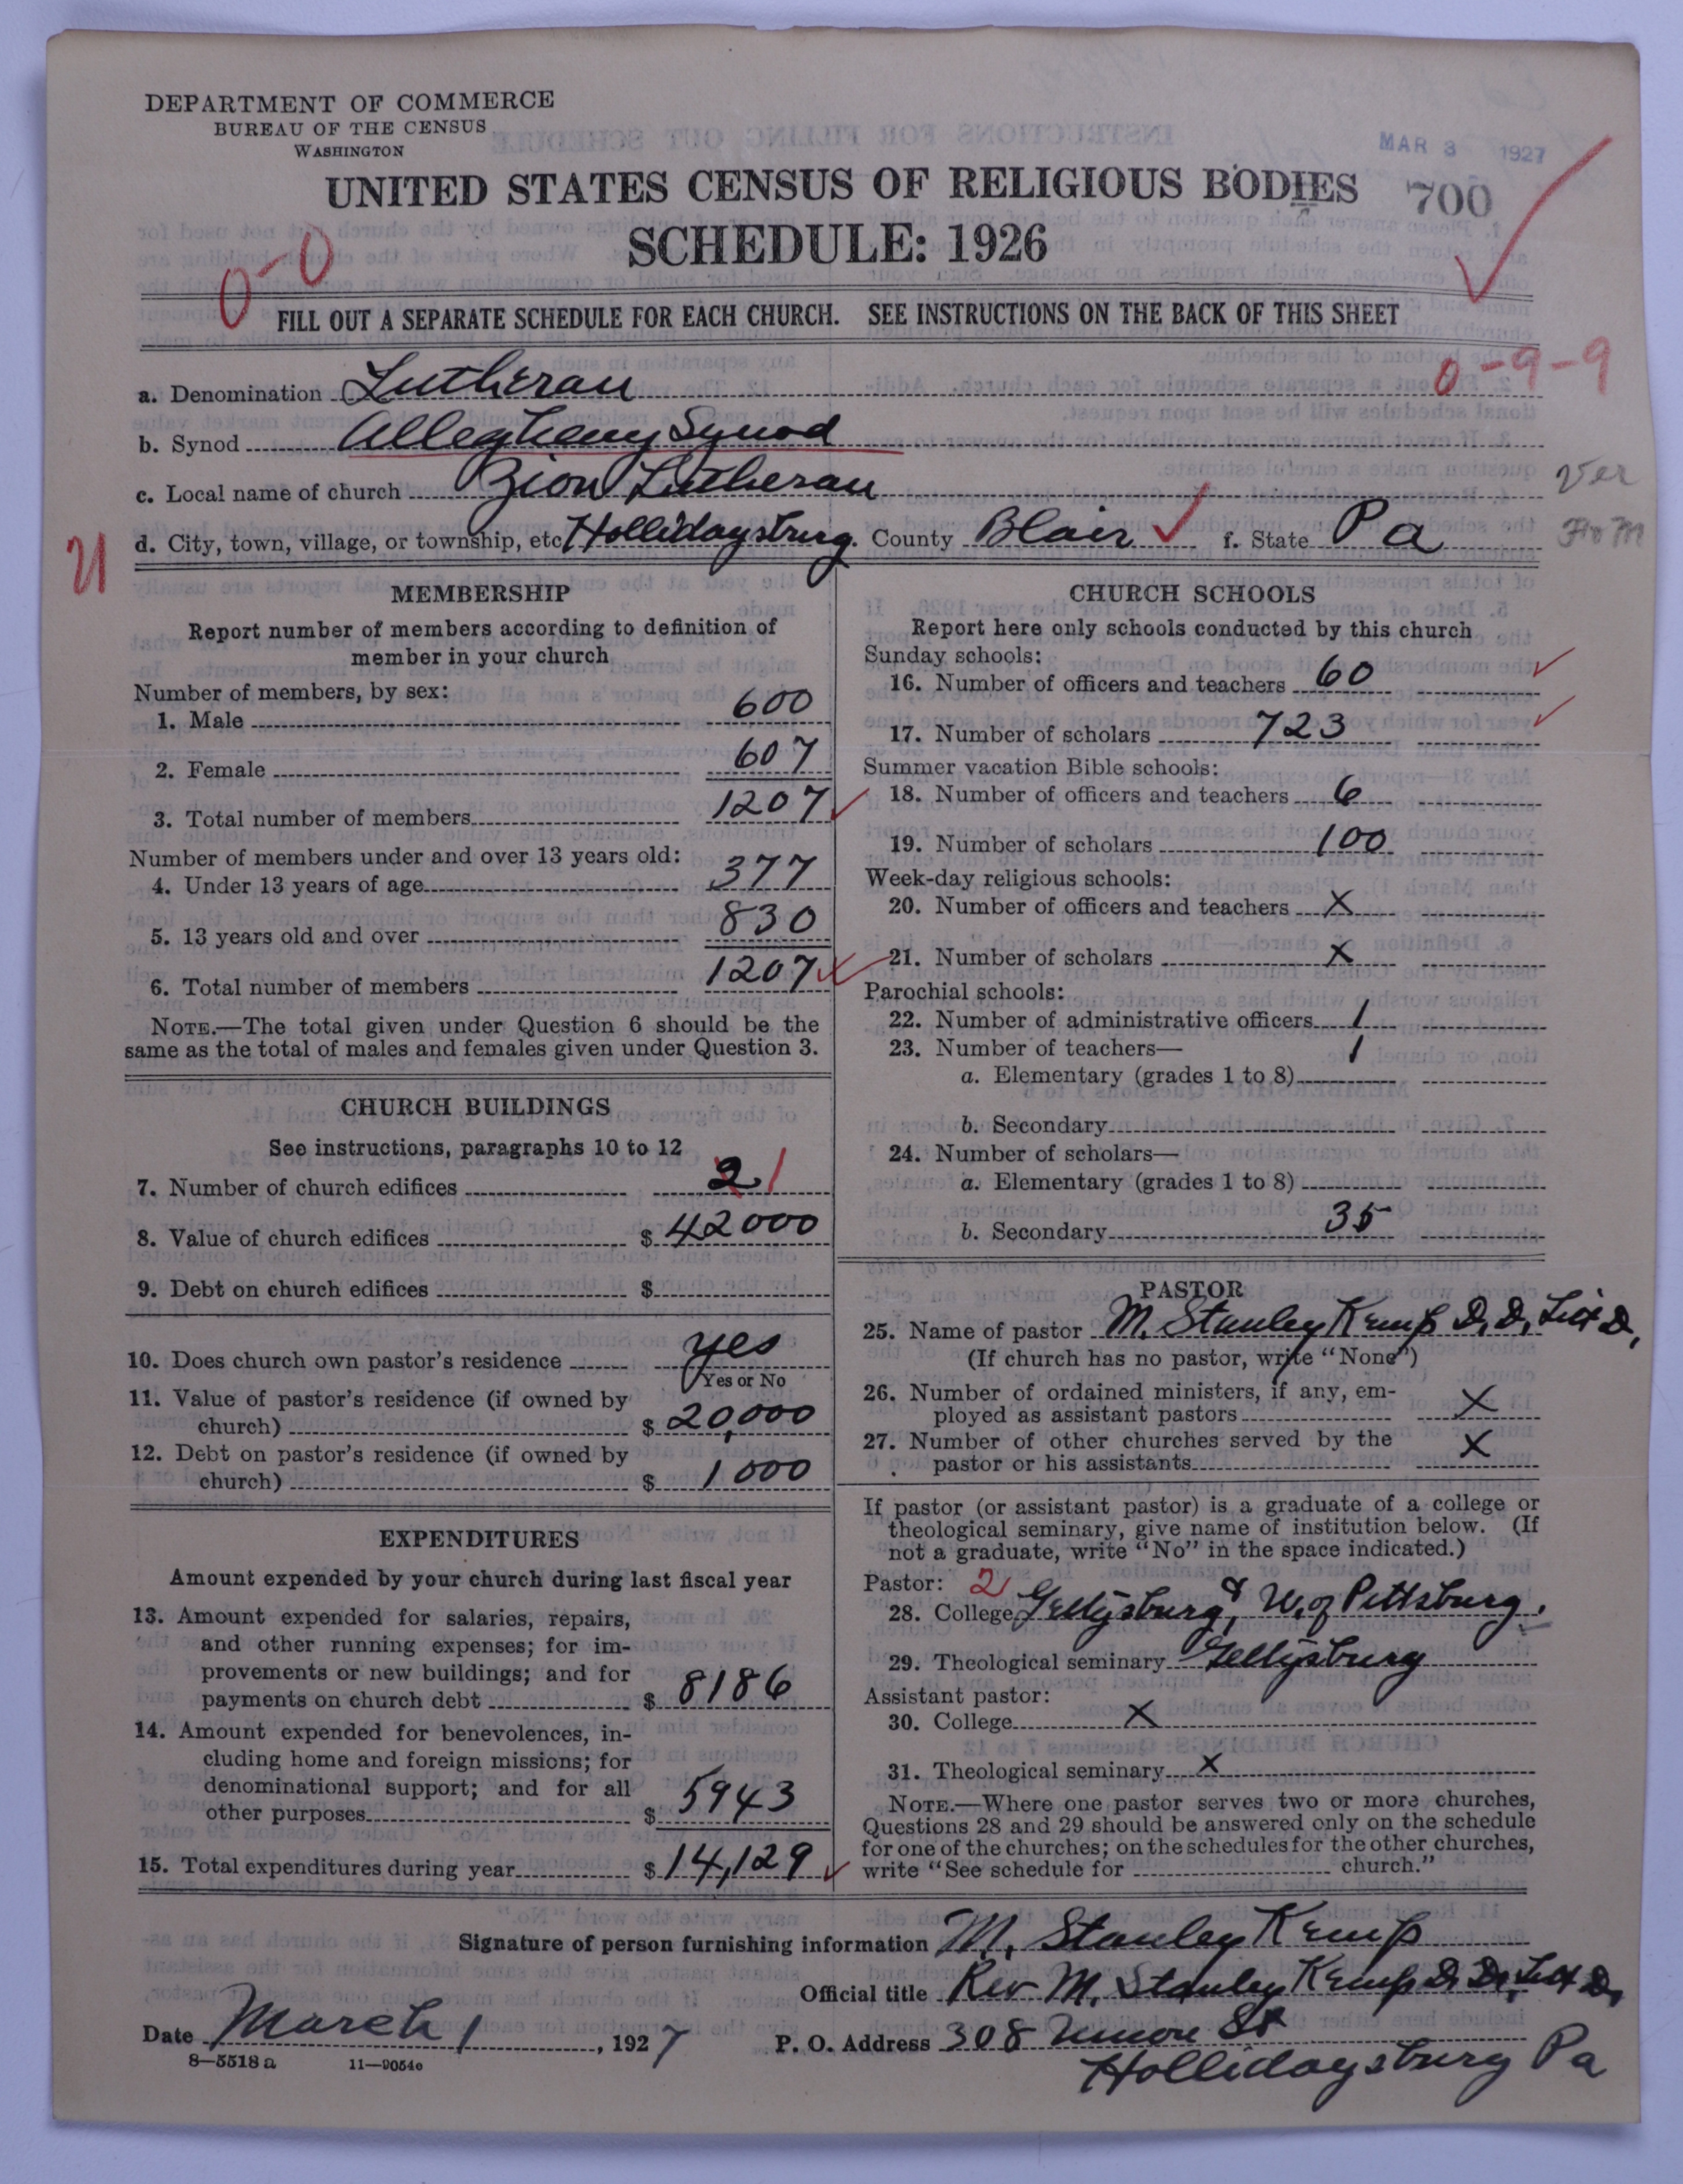 DEPARTMENT OF COMMERCE
BUREAU OF THE CENSUS
WASHINGTON
MAR 3 1927
UNITED STATES CENSUS OF RELIGIOUS BODIES 700
SCHEDULE: 1926
0-0
FILL OUT A SEPARATE SCHEDULE FOR EACH CHURCH. SEE INSTRUCTIONS ON THE BACK OF THIS SHEET
0-9-9
a. Denomination Lutheran
b. Synod Allegheny Synod
c. Local name of church Zion Lutheran
Ver
d. City, town, village, or township, etc. Hollidaysburg. County Blair f. State Pa
U
MEMBERSHIP
Report number of members according to definition of
member in your church
Number of members, by sex:
1. Male 600
2. Female 607
3. Total number of members 1207
Number of members under and over 13 years old:
4. Under 13 years of age 377
5. 13 years old and over 830
6. Total number of members 1207
NOTE.—The total given under Question 6 should be the
same as the total of males and females given under Question 3.
CHURCH BUILDINGS
See instructions, paragraphs 10 to 12
7. Number of church edifices 2 1
8. Value of church edifices $ 42000
9. Debt on church edifices $
10. Does church own pastor's residence yes
Yes or No
11. Value of pastor's residence (if owned by
church) $ 20,000
12. Debt on pastor's residence (if owned by
church) $ 1000
EXPENDITURES
Amount expended by your church during last fiscal year
13. Amount expended for salaries, repairs,
and other running expenses; for im-
provements or new buildings; and for
payments on church debt $ 8186
14. Amount expended for benevolences, in-
cluding home and foreign missions; for
denominational support; and for all
other purposes $ 5943
15. Total expenditures during year $ 14,129
CHURCH SCHOOLS
Report here only schools conducted by this church
Sunday schools:
16. Number of officers and teachers 60
17. Number of scholars 723
Summer vacation Bible schools:
18. Number of officers and teachers 6
19. Number of scholars 100
Week-day religious schools:
20. Number of officers and teachers X
21. Number of scholars X
Parochial schools:
22. Number of administrative officers 1
23. Number of teachers— 1
a. Elementary (grades 1 to 8)
b. Secondary
24. Number of scholars—
a. Elementary (grades 1 to 8)
b. Secondary 35
PASTOR
25. Name of pastor M. Stanley Kemp D.D. Litt D.
(If church has no pastor, write "None")
26. Number of ordained ministers, if any, em-
ployed as assistant pastors X
27. Number of other churches served by the
pastor or his assistants X
If pastor (or assistant pastor) is a graduate of a college or
theological seminary, give name of institution below. (If
not a graduate, write "No" in the space indicated.)
Pastor: 2
28. College Gettysburg, & U. of Pittsburg.
29. Theological seminary Gettysburg
Assistant pastor:
30. College X
31. Theological seminary X
NOTE.—Where one pastor serves two or more churches,
Questions 28 and 29 should be answered only on the schedule
for one of the churches; on the schedules for the other churches,
write "See schedule for church."
Signature of person furnishing information M. Stanley Kemp
Official title Rev M. Stanley Kemp D. D., Litt D.
Date March 1, 1927 P. O. Address 308 Union St
8—5518 a 11—9054e
Hollidaysburg Pa